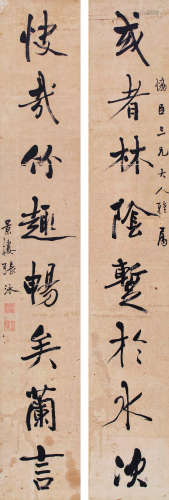 臣三兄大人雅屬
或者林陰暫於水次
快哉竹趣暢矣蘭言
景張